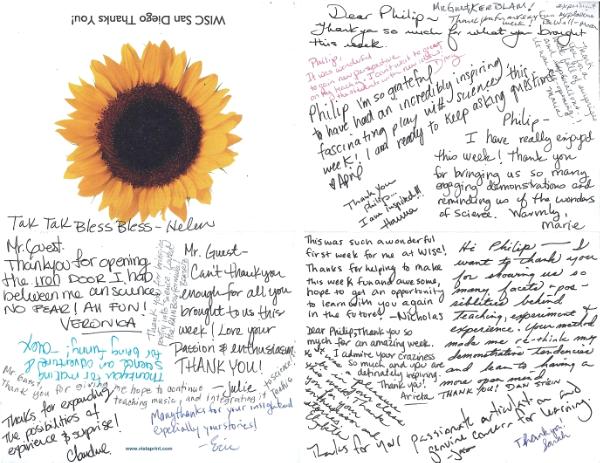 WISC San Diego Thanks You!
Tak Tak Bless Bless - Helen
Dear Philip~
Thank you so much for what you brought
this week.
Mr Guest KER BLAM!
Philip,
It was wonderful
Philip I'm so grateful
to have had an incredibly inspiring
fascinating play with science this
week! I am ready to keep asking questions
♥ April
Thank you
Philip...
I am inspired!!!
Philip -
I have really enjoyed
this week! Thank you
for bringing us so many
engaging demonstrations and
reminding us of the wonders
of science. Warmly,
Marie
Mr. Guest
Thank you for opening
the iron DOOR I had
between me and science
NO FEAR! All FUN!
VERONICA
Mr. Guest-
Can't thank you
enough for all you
brought to us this
week! Love your
Passion & enthusiasm
THANK YOU!
- Julie
Thank you for making
science an adventure &
for being funny!
Mr Guest,
Thank you for giving me hope to continue
teaching music and integrating it to science!
Thanks for expanding
the possibilities of
experience & surprise!
Claudine
Many thanks for your insight and
especially your stories!
- Eric
www.vistaprint.com
This was such a wonderful
first week for me at Wise!
Thanks for helping to make
this week fun and awesome,
hope to get an opportunity
to learn with you again
in the future! -Nicholas
Dear Philip, Thank you so
much for an amazing week.
I admire your craziness
so much and you are
definately inspiring.
Thank you!
Arieta
Hi Philip -- I
want to thank you
for showing us so
many facets - pos-
sibilities behind
Teaching, experiment &
experience. Your method
made me re-think my
demonstrative Tendencies
and lean to having a
more open mind.
THANK YOU! JOAN STEIN
Thanks for your passionate articulation and
genuine concern for learning.
Thank you!
Sarah